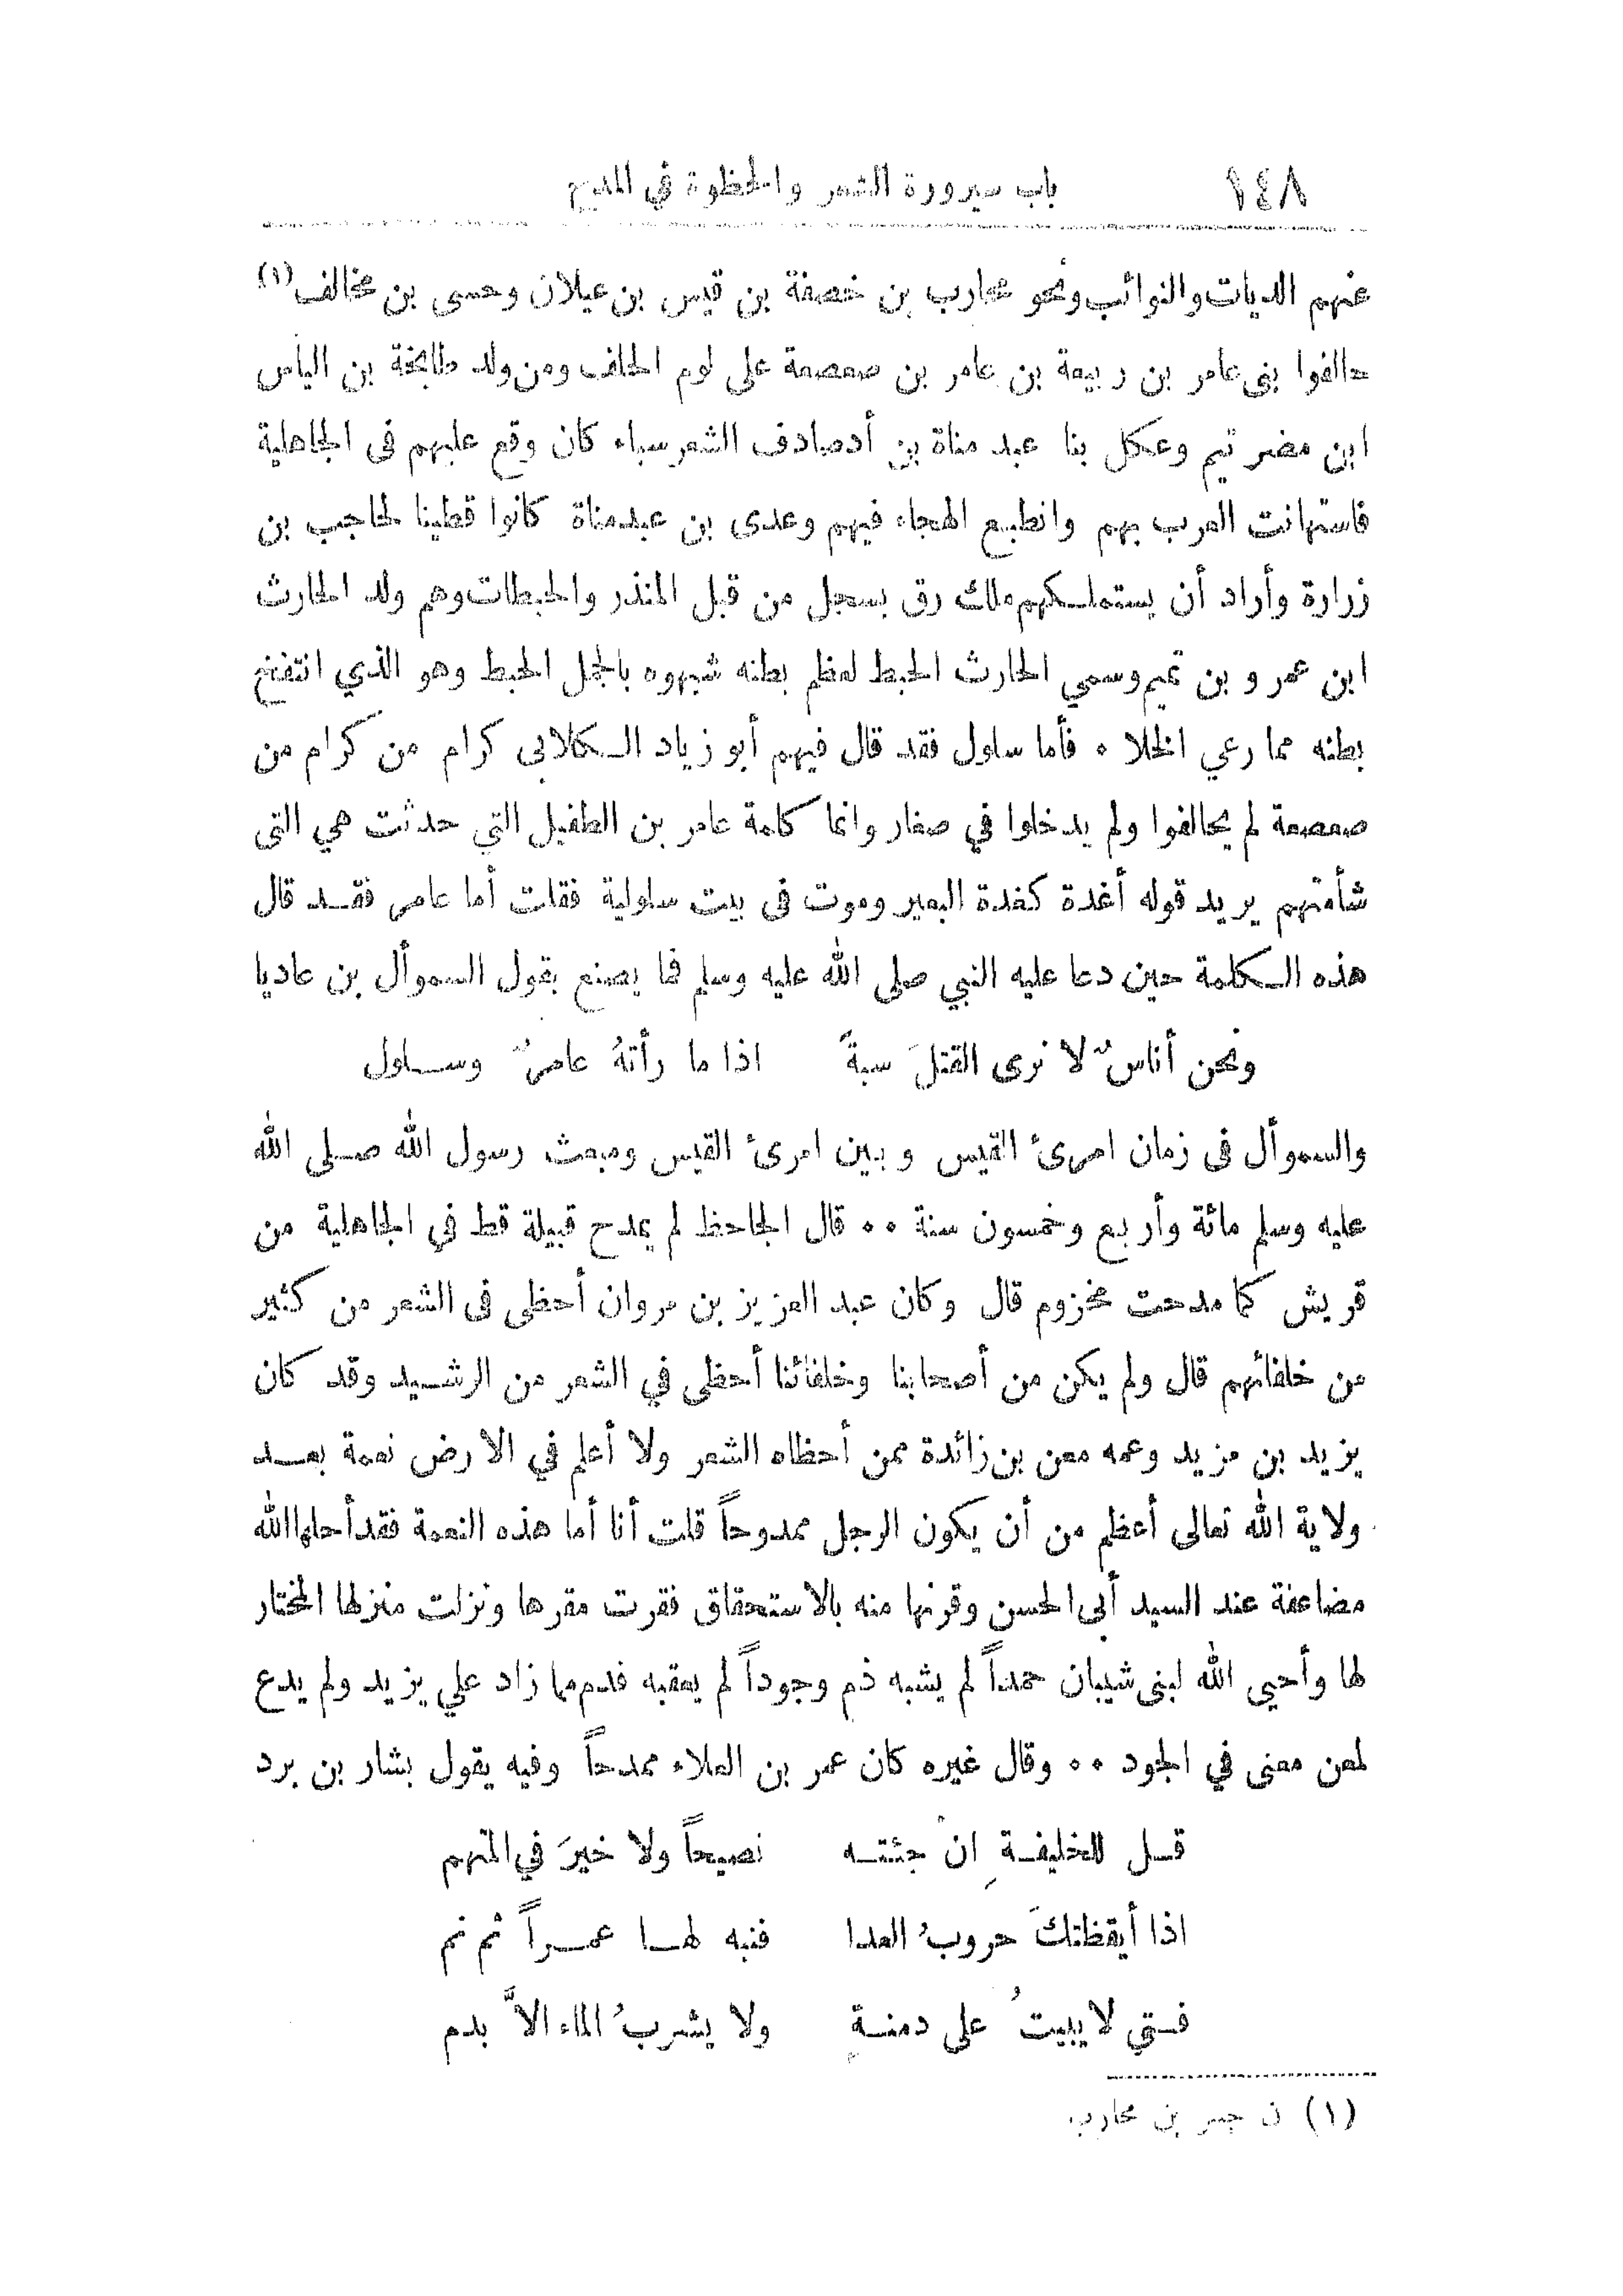 ١٤٨ باب سيرورة الشعر والحظوة في المديح
عنهم الديات والنوائب ونحو محارب بن خصفة بن قيس بن عيلان وحسى بن مخالف(١)
حالفوا بنى عامر بن ربيعة بن عامر بن صعصعة على لوم الحلف ومن ولد طابخة بن الياس
ابن مضر تيم وعكل بنا عبد مناة بن أد صادف الشعر سباء كان وقع عليهم فى الجاهلية
فاستهانت العرب بهم وانطبع الهجاء فيهم وعدى بن عبد مناة كانوا قطينا لحاجب بن
زرارة وأراد أن يستملكهم ملك رق بسجل من قبل المنذر والحبطات وهم ولد الحارث
ابن عمرو بن تميم وسمي الحارث الحبط لعظم بطنه شبهوه بالجمل الحبط وهو الذي انتفخ
بطنه مما رعي الخلا ٠ فأما سلول فقد قال فيهم أبو زياد الكلابى كرام من كرام من
صعصعة لم يحالفوا ولم يدخلوا في صغار وانما كلمة عامر بن الطفيل التي حدثت هي التى
شأمتهم يريد قوله أغدة كغدة البعير وموت فى بيت سلولية فقلت أما عامر فقد قال
هذه الكلمة حين دعا عليه النبي صلى الله عليه وسلم فما يصنع بقول السموأل بن عاديا
ونحن أناسٌ لا نرى القتلَ سبةً اذا ما رأتهُ عامرٌ وسلول
والسموأل فى زمان امرئ القيس وبين امرئ القيس ومبعث رسول الله صلى الله
عليه وسلم مائة وأربع وخمسون سنة ٠٠ قال الجاحظ لم يمدح قبيلة قط في الجاهلية من
قريش كما مدحت مخزوم قال وكان عبد العزيز بن مروان أحظى فى الشعر من كثير
من خلفائهم قال ولم يكن من أصحابنا وخلفائنا أحظى في الشعر من الرشيد وقد كان
يزيد بن مزيد وعمه معن بن زائدة ممن أحظاه الشعر ولا أعلم في الارض نعمة بعد
ولاية الله تعالى أعظم من أن يكون الرجل ممدوحاً قلت أنا أما هذه النعمة فقد أحلها الله
مضاعفة عند السيد أبى الحسن وقرنها منه بالاستحقاق فقرت مقرها ونزلت منزلها المختار
لها وأحيى الله لبنى شيبان حمداً لم يشبه ذم وجوداً لم يعقبه فدم مما زاد علي يزيد ولم يدع
لمعن معنى في الجود ٠٠ وقال غيره كان عمر بن العلاء ممدحاً وفيه يقول بشار بن برد
قل للخليفةِ ان جئته نصيحاً ولا خيرَ في المتهم
اذا أيقظتكَ حروبُ العدا فنبه لها عمراً ثم نم
فتى لا يبيتُ على دمنةٍ ولا يشربُ الماء الاَّ بدم
(١) ن جسر بن محارب